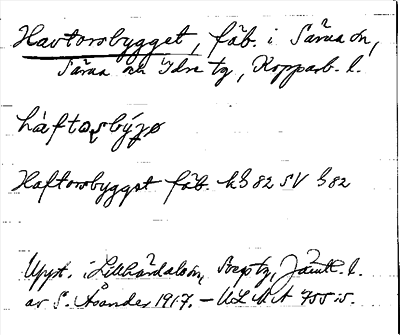 Havtorsbygget, fäb. i Särna sn,
Särna och Idre tg, Kopparb. l.
háftosbýgə
Haftorsbygget fäb. kG 82 SV G 82
Uppt. i Lillhärdals sn, Svegs tg, Jämtl. l.
av S. Åsander 1917. – ULMA 755 is.